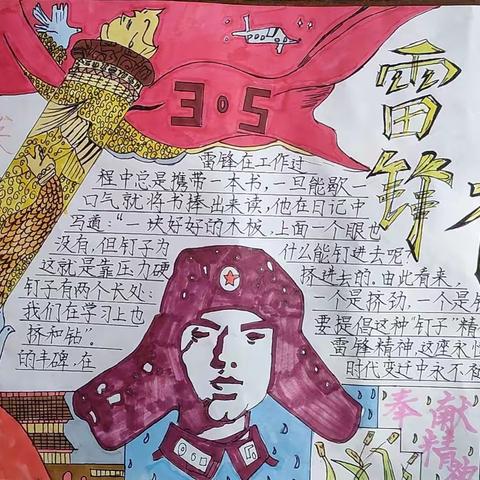 3·5
雷锋
雷锋在工作过
程中总是携带一本书,一旦能歇一
口气就将书捧出来读,他在日记中
写道:“一块好好的木板,上面一个眼也
没有,但钉子为什么能钉进去呢?
这就是靠压力硬挤进去的。由此看来,
钉子有两个长处:一个是挤劲,一个是
我们在学习上也要提倡这种“钉子”精
挤和钻”。雷锋精神,这座永恒
的丰碑,在时代变迁中永不
奉献
精神